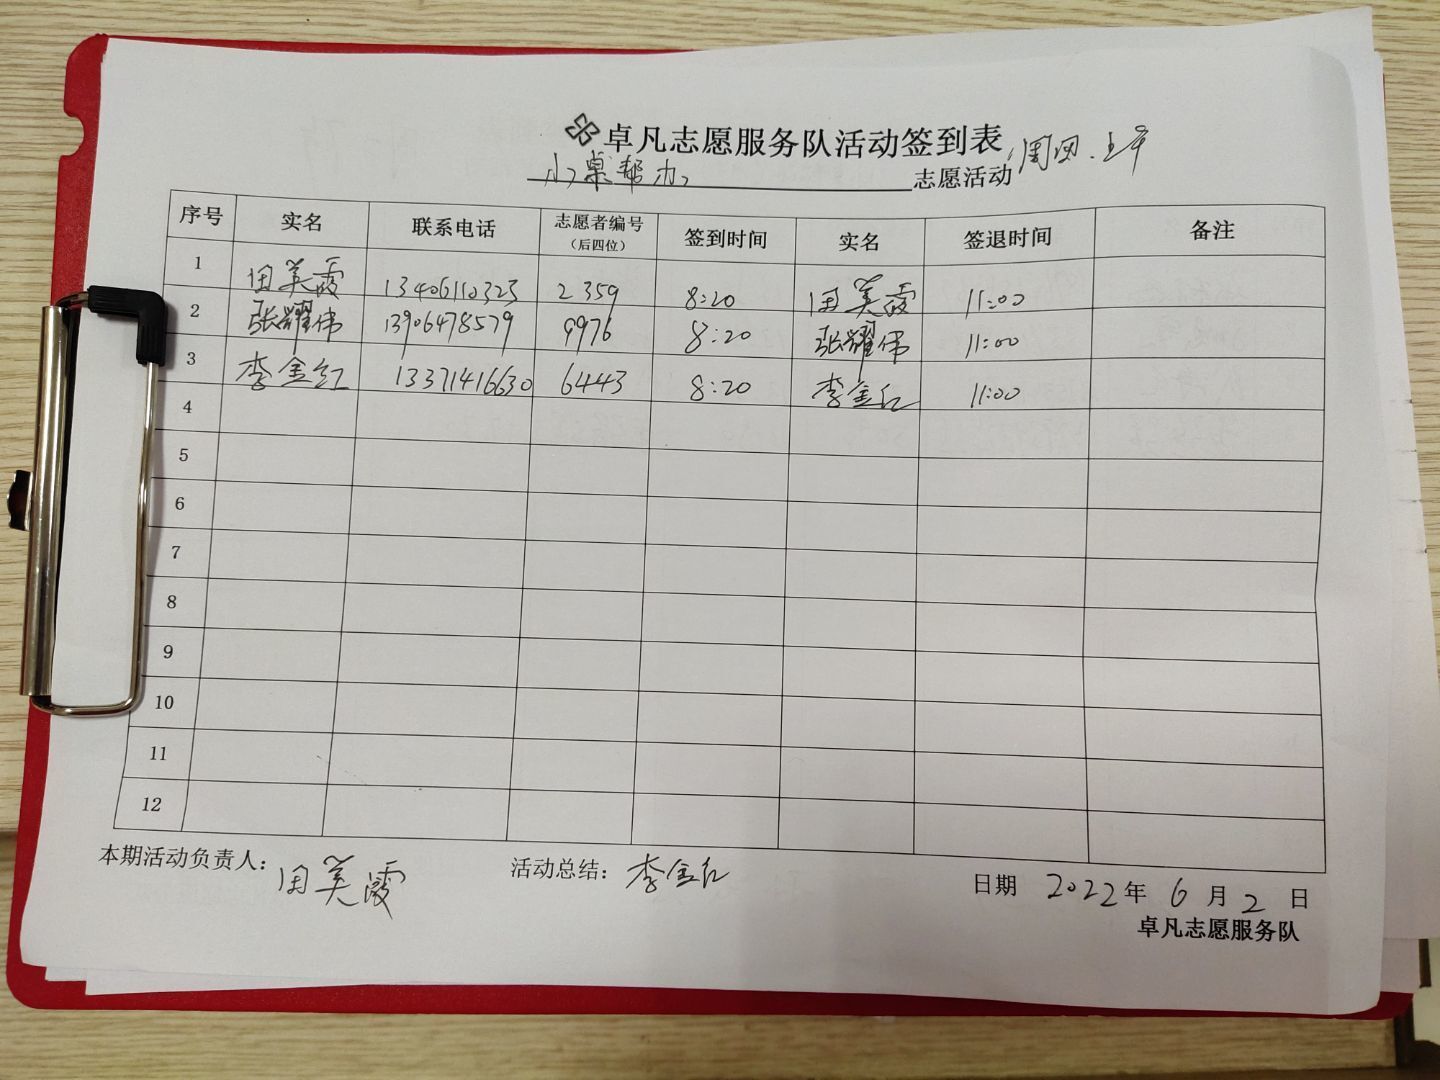 卓凡志愿服务队活动签到表
小桌帮办 志愿活动 周四.上午
序号 实名 联系电话 志愿者编号（后四位） 签到时间 实名 签退时间 备注
1 田美霞 13406110323 2359 8:20 田美霞 11:00
2 张耀伟 13906478579 9976 8:20 张耀伟 11:00
3 李金红 13371416630 6443 8:20 李金红 11:00
4
5
6
7
8
9
10
11
12
本期活动负责人：田美霞 活动总结：李金红 日期 2022年6月2日
卓凡志愿服务队